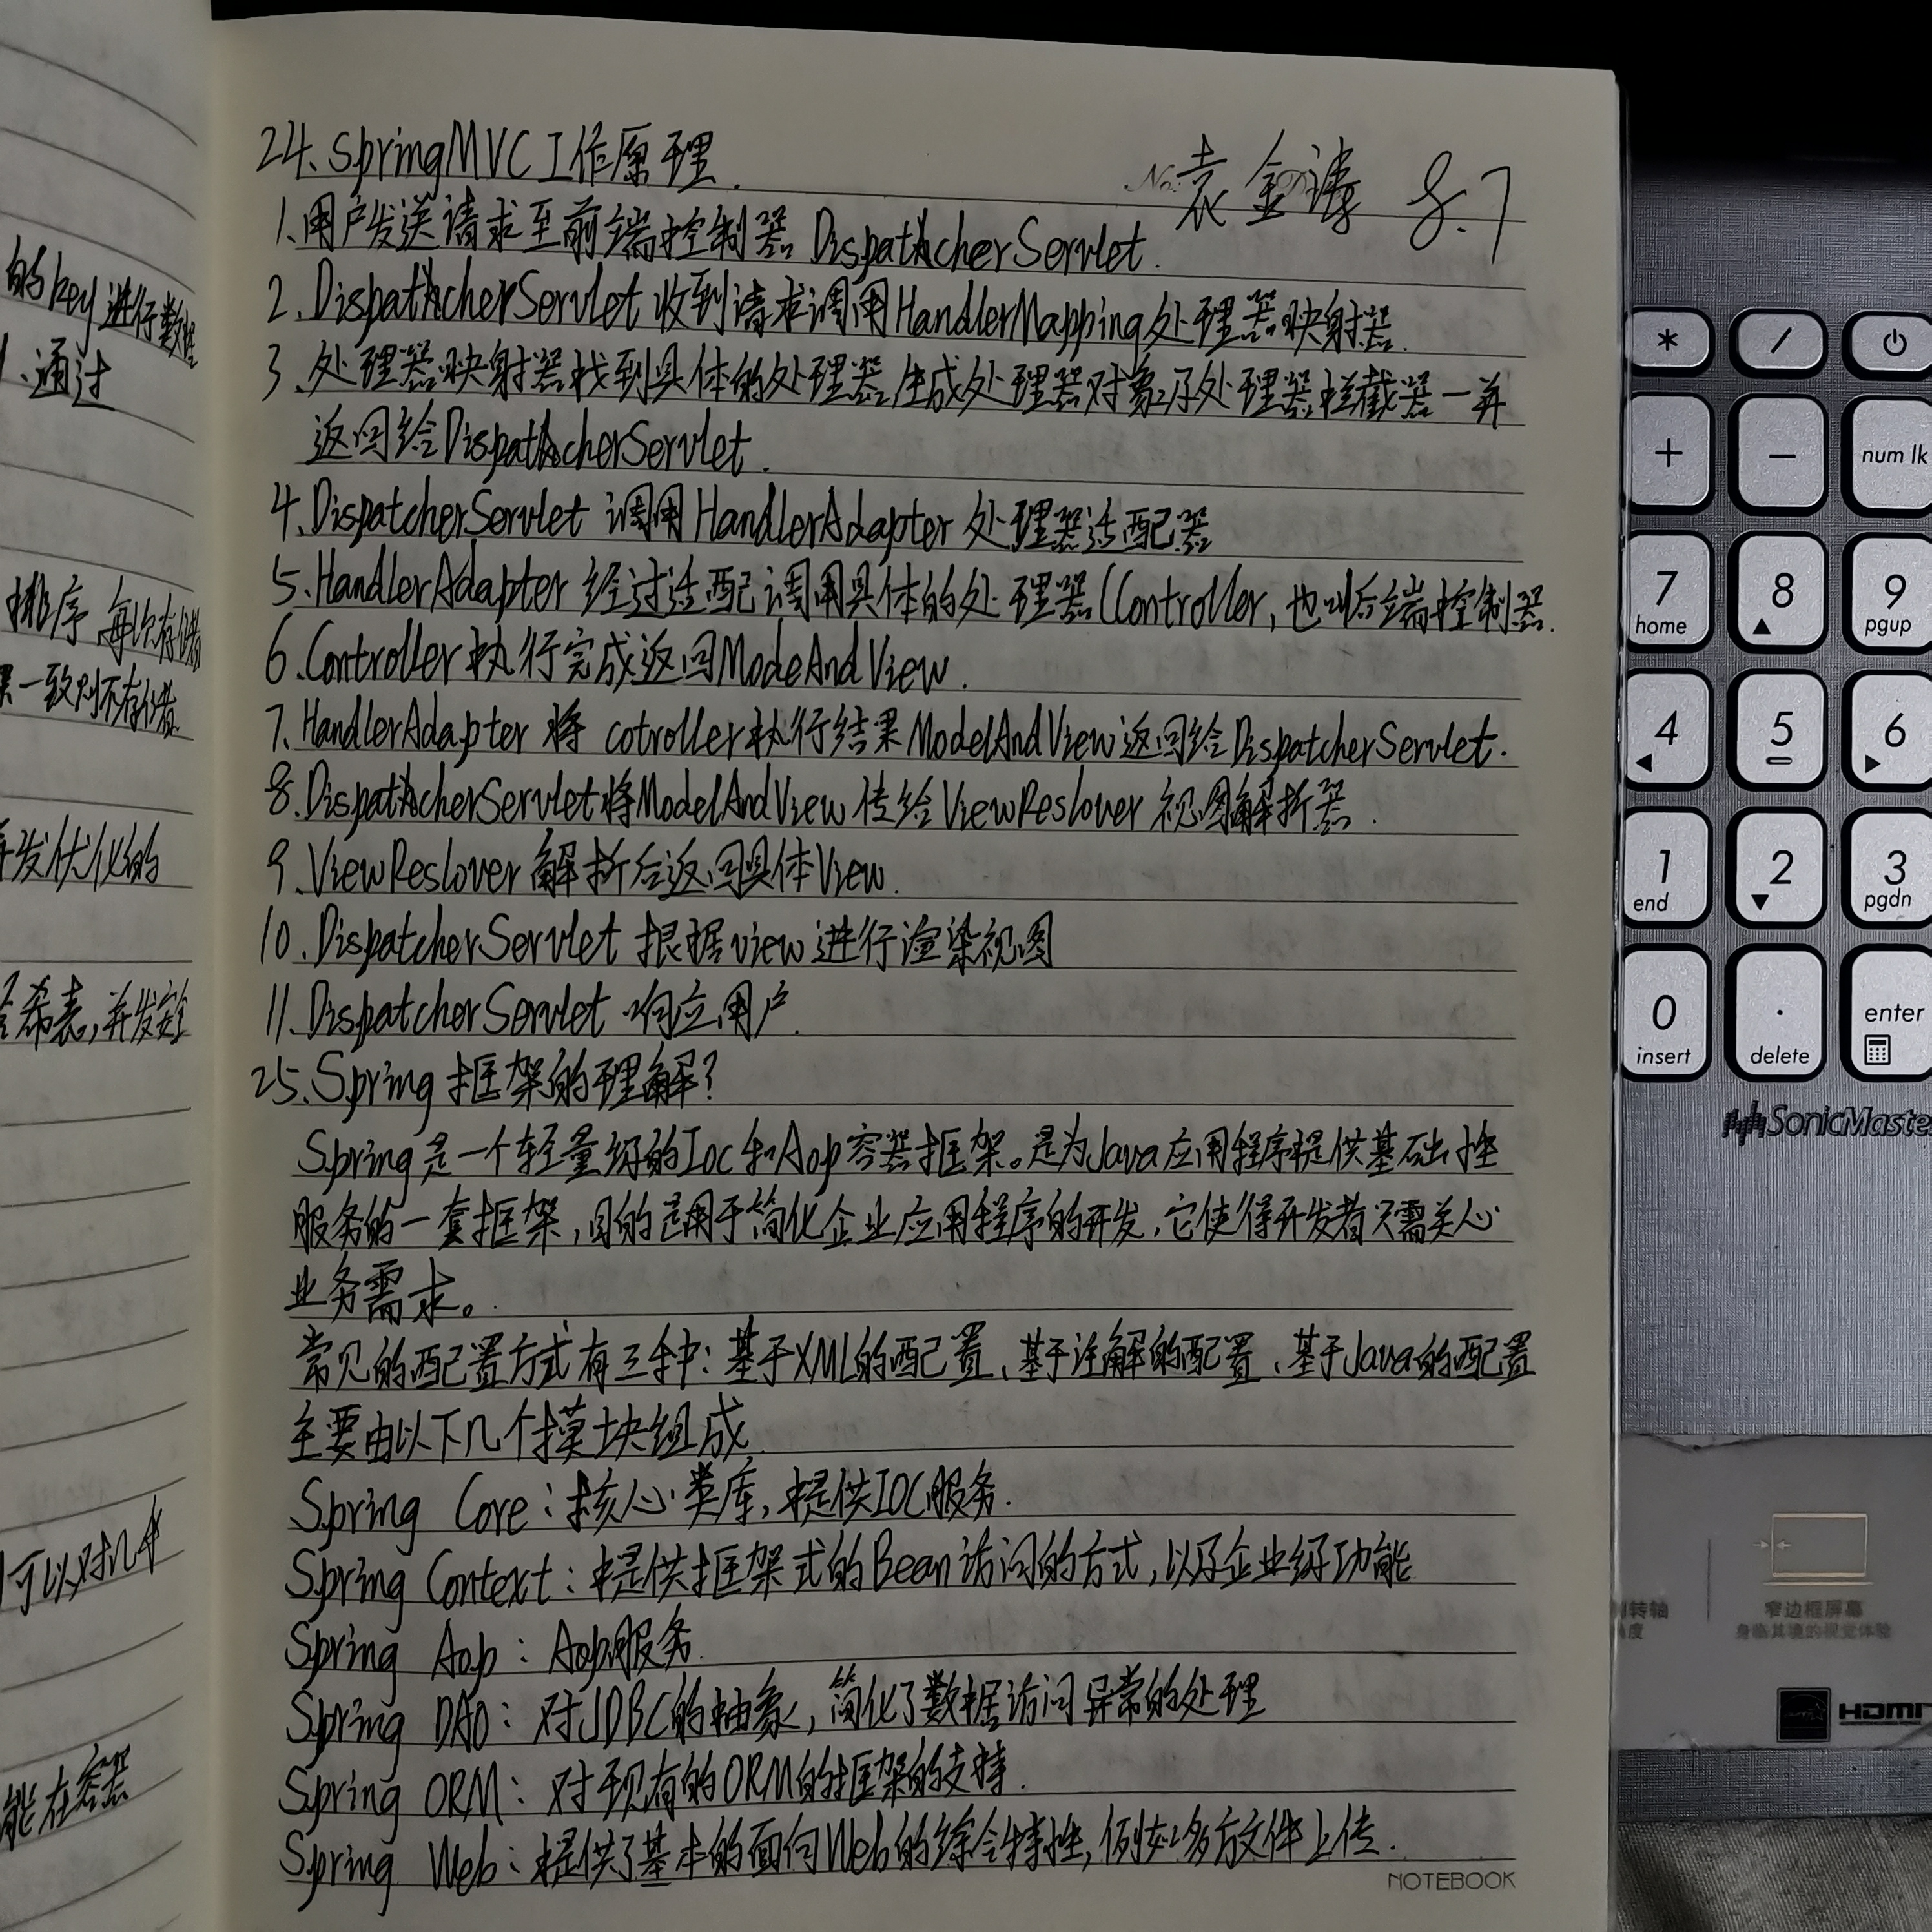 的key进行数据
1、通过
排序 每次存储
果一致则不存储
并发优化的
哈希表,并发安全
可以对几个
能在容器
24、SpringMVC工作原理.
No:
袁金涛 8.7
1、用户发送请求至前端控制器 DispatcherServlet.
2、DispatcherServlet 收到请求调用HandlerMapping处理器映射器.
3、处理器映射器找到具体的处理器,生成处理器对象及处理器拦截器一并
返回给DispatcherServlet.
4.DispatcherServlet 调用 HandlerAdapter 处理器适配器
5.HandlerAdapter 经过适配调用具体的处理器(Controller,也叫后端控制器.
6.Controller 执行完成返回ModeAndView.
7、HandlerAdapter 将 cotroller执行结果 ModelAndView返回给DispatcherServlet.
8.DispatcherServlet将ModelAndView 传给 ViewReslover 视图解析器.
9、ViewReslover 解析后返回具体View.
10.DispatcherServlet 根据view 进行渲染视图
11.DispatcherServlet 响应用户.
25.Spring 框架的理解?
Spring是一个轻量级的Ioc和Aop容器框架。是为Java应用程序提供基础性
服务的一套框架,目的是用于简化企业应用程序的开发,它使得开发者只需关心
业务需求。
常见的配置方式有三种:基于XML的配置、基于注解的配置、基于Java的配置
主要由以下几个模块组成
Spring Core:核心类库,提供IOC服务.
Spring Context:提供框架式的Bean访问的方式,以及企业级功能
Spring Aop:Aop服务.
Spring DAO:对JDBC的抽象,简化了数据访问异常的处理
Spring ORM:对于现有的ORM的框架的支持.
Spring Web:提供了基本的面向Web的综合特性,例如多方文件上传.
NOTEBOOK
* /
+ - num lk
7 home 8 9 pgup
4 5 6
1 end 2 3 pgdn
0 insert . delete enter
SonicMaste
转轴
度
窄边框屏幕
身临其境的视觉体验
HDMI